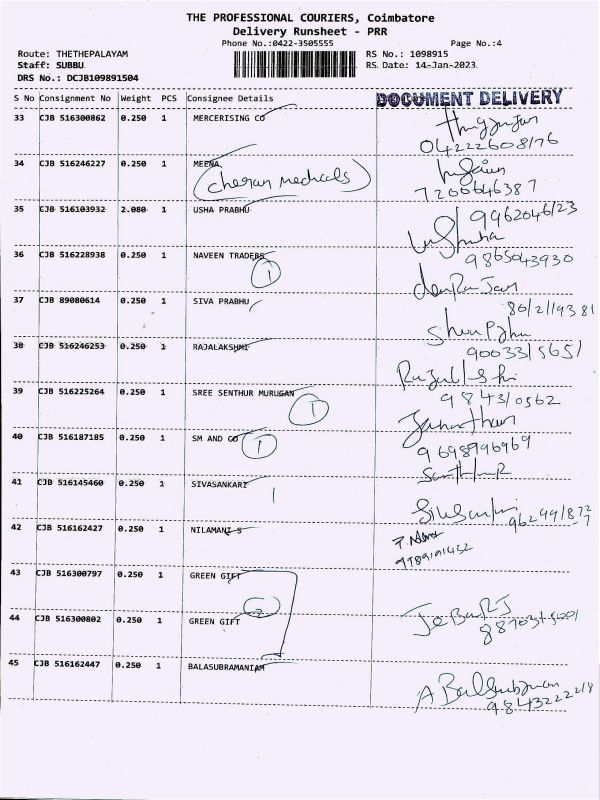 THE PROFESSIONAL COURIERS, Coimbatore
Delivery Runsheet - PRR
Phone No.:0422-3505555 Page No.:4
Route: THETHEPALAYAM RS No.: 1098915
Staff: SUBBU RS Date: 14-Jan-2023
DRS No.: DCJB109891504
S No Consignment No Weight PCS Consignee Details DOCUMENT DELIVERY
33 CJB 516300862 0.250 1 MERCERISING CO
04222608176
34 CJB 516246227 0.250 1 MEENA
(cheran medicals)
7200646387
35 CJB 516103932 2.080 1 USHA PRABHU 9962046123
36 CJB 516228938 0.250 1 NAVEEN TRADERS 9865043930
1
37 CJB 89080614 0.250 1 SIVA PRABHU
38 CJB 516246253 0.250 1 RAJALAKSHMI 9003315651
39 CJB 516225264 0.250 1 SREE SENTHUR MURUGAN 984310562
1
40 CJB 516187185 0.250 1 SM AND CO 1 9698996969
41 CJB 516145460 0.250 1 SIVASANKARI
1
42 CJB 516162427 0.250 1 NILAMANI S
9789191432
43 CJB 516300797 0.250 1 GREEN GIFT
2
44 CJB 516300802 0.250 1 GREEN GIFT
45 CJB 516162447 0.250 1 BALASUBRAMANIAM
A Balsubraman